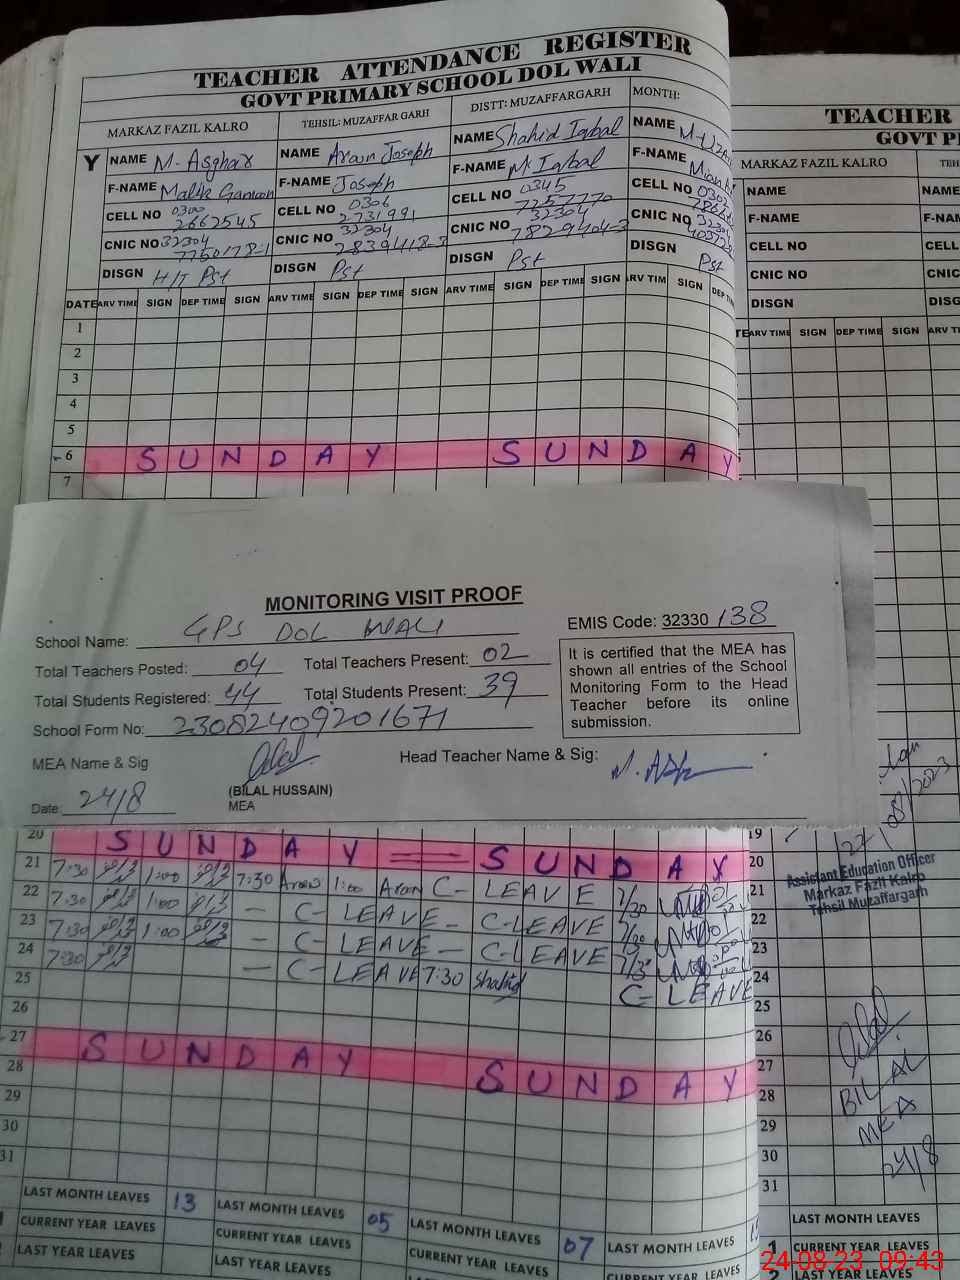 TEACHER ATTENDANCE REGISTER
GOVT PRIMARY SCHOOL DOL WALI
MARKAZ FAZIL KALRO TEHSIL: MUZAFFAR GARH DISTT: MUZAFFARGARH MONTH:
Y NAME M. Asghar NAME Aroon Joseph NAME Shahid Iqbal NAME
F-NAME Malik F-NAME Joseph F-NAME M. Iqbal F-NAME
CELL NO 0300 2662545 CELL NO 0306 2731991 CELL NO 0345 7257770 CELL NO
CNIC NO 32304 CNIC NO 32304 2839418-3 CNIC NO 32304 7829404-3 CNIC NO
DISGN H/T Pst DISGN Pst DISGN Pst DISGN Pst
DATE ARV TIME SIGN DEP TIME SIGN ARV TIME SIGN DEP TIME SIGN ARV TIME SIGN DEP TIME SIGN ARV TIM SIGN DEP TIM
1
2
3
4
5
6 SUNDAY SUNDAY
7
MONITORING VISIT PROOF
School Name: GPS DOL WALI EMIS Code: 32330 138
Total Teachers Posted: 04 Total Teachers Present: 02
Total Students Registered: 44 Total Students Present: 39
School Form No: 23082409201671
It is certified that the MEA has
shown all entries of the School
Monitoring Form to the Head
Teacher before its online
submission.
MEA Name & Sig Head Teacher Name & Sig:
(BILAL HUSSAIN)
Date: 24/8 MEA
20 SUNDAY SUNDAY
21 7:30 1:00 7:30 Aroon 1:00 Aroon C- LEAVE 7/30
22 7:30 1:00 - C- LEAVE - C-LEAVE 7/30
23 7:30 1:00 - C- LEAVE - C-LEAVE 7/30
24 7:30 - C- LEAVE 7:30 Shahid C- LEAVE
25
26
27 SUNDAY SUNDAY
28
29
30
31
LAST MONTH LEAVES 13 LAST MONTH LEAVES 05 LAST MONTH LEAVES 07 LAST MONTH LEAVES
CURRENT YEAR LEAVES CURRENT YEAR LEAVES CURRENT YEAR LEAVES CURRENT YEAR LEAVES
LAST YEAR LEAVES LAST YEAR LEAVES
TEACHER
GOVT P
MARKAZ FAZIL KALRO TEH
NAME NAME
F-NAME F-NA
CELL NO CELL
CNIC NO CNIC
DISGN DISG
ARV TIME SIGN DEP TIME SIGN ARV T
22/08/2023
Assistant Education Officer
Markaz Fazil Kalro
Tehsil Muzaffargarh
19
20
21
22
23
24
25
26
27
28
29
30
31
BILAL
MEA
24/8
LAST MONTH LEAVES
1 CURRENT YEAR LEAVES
2 LAST YEAR LEAVES
24-08-23 09:43